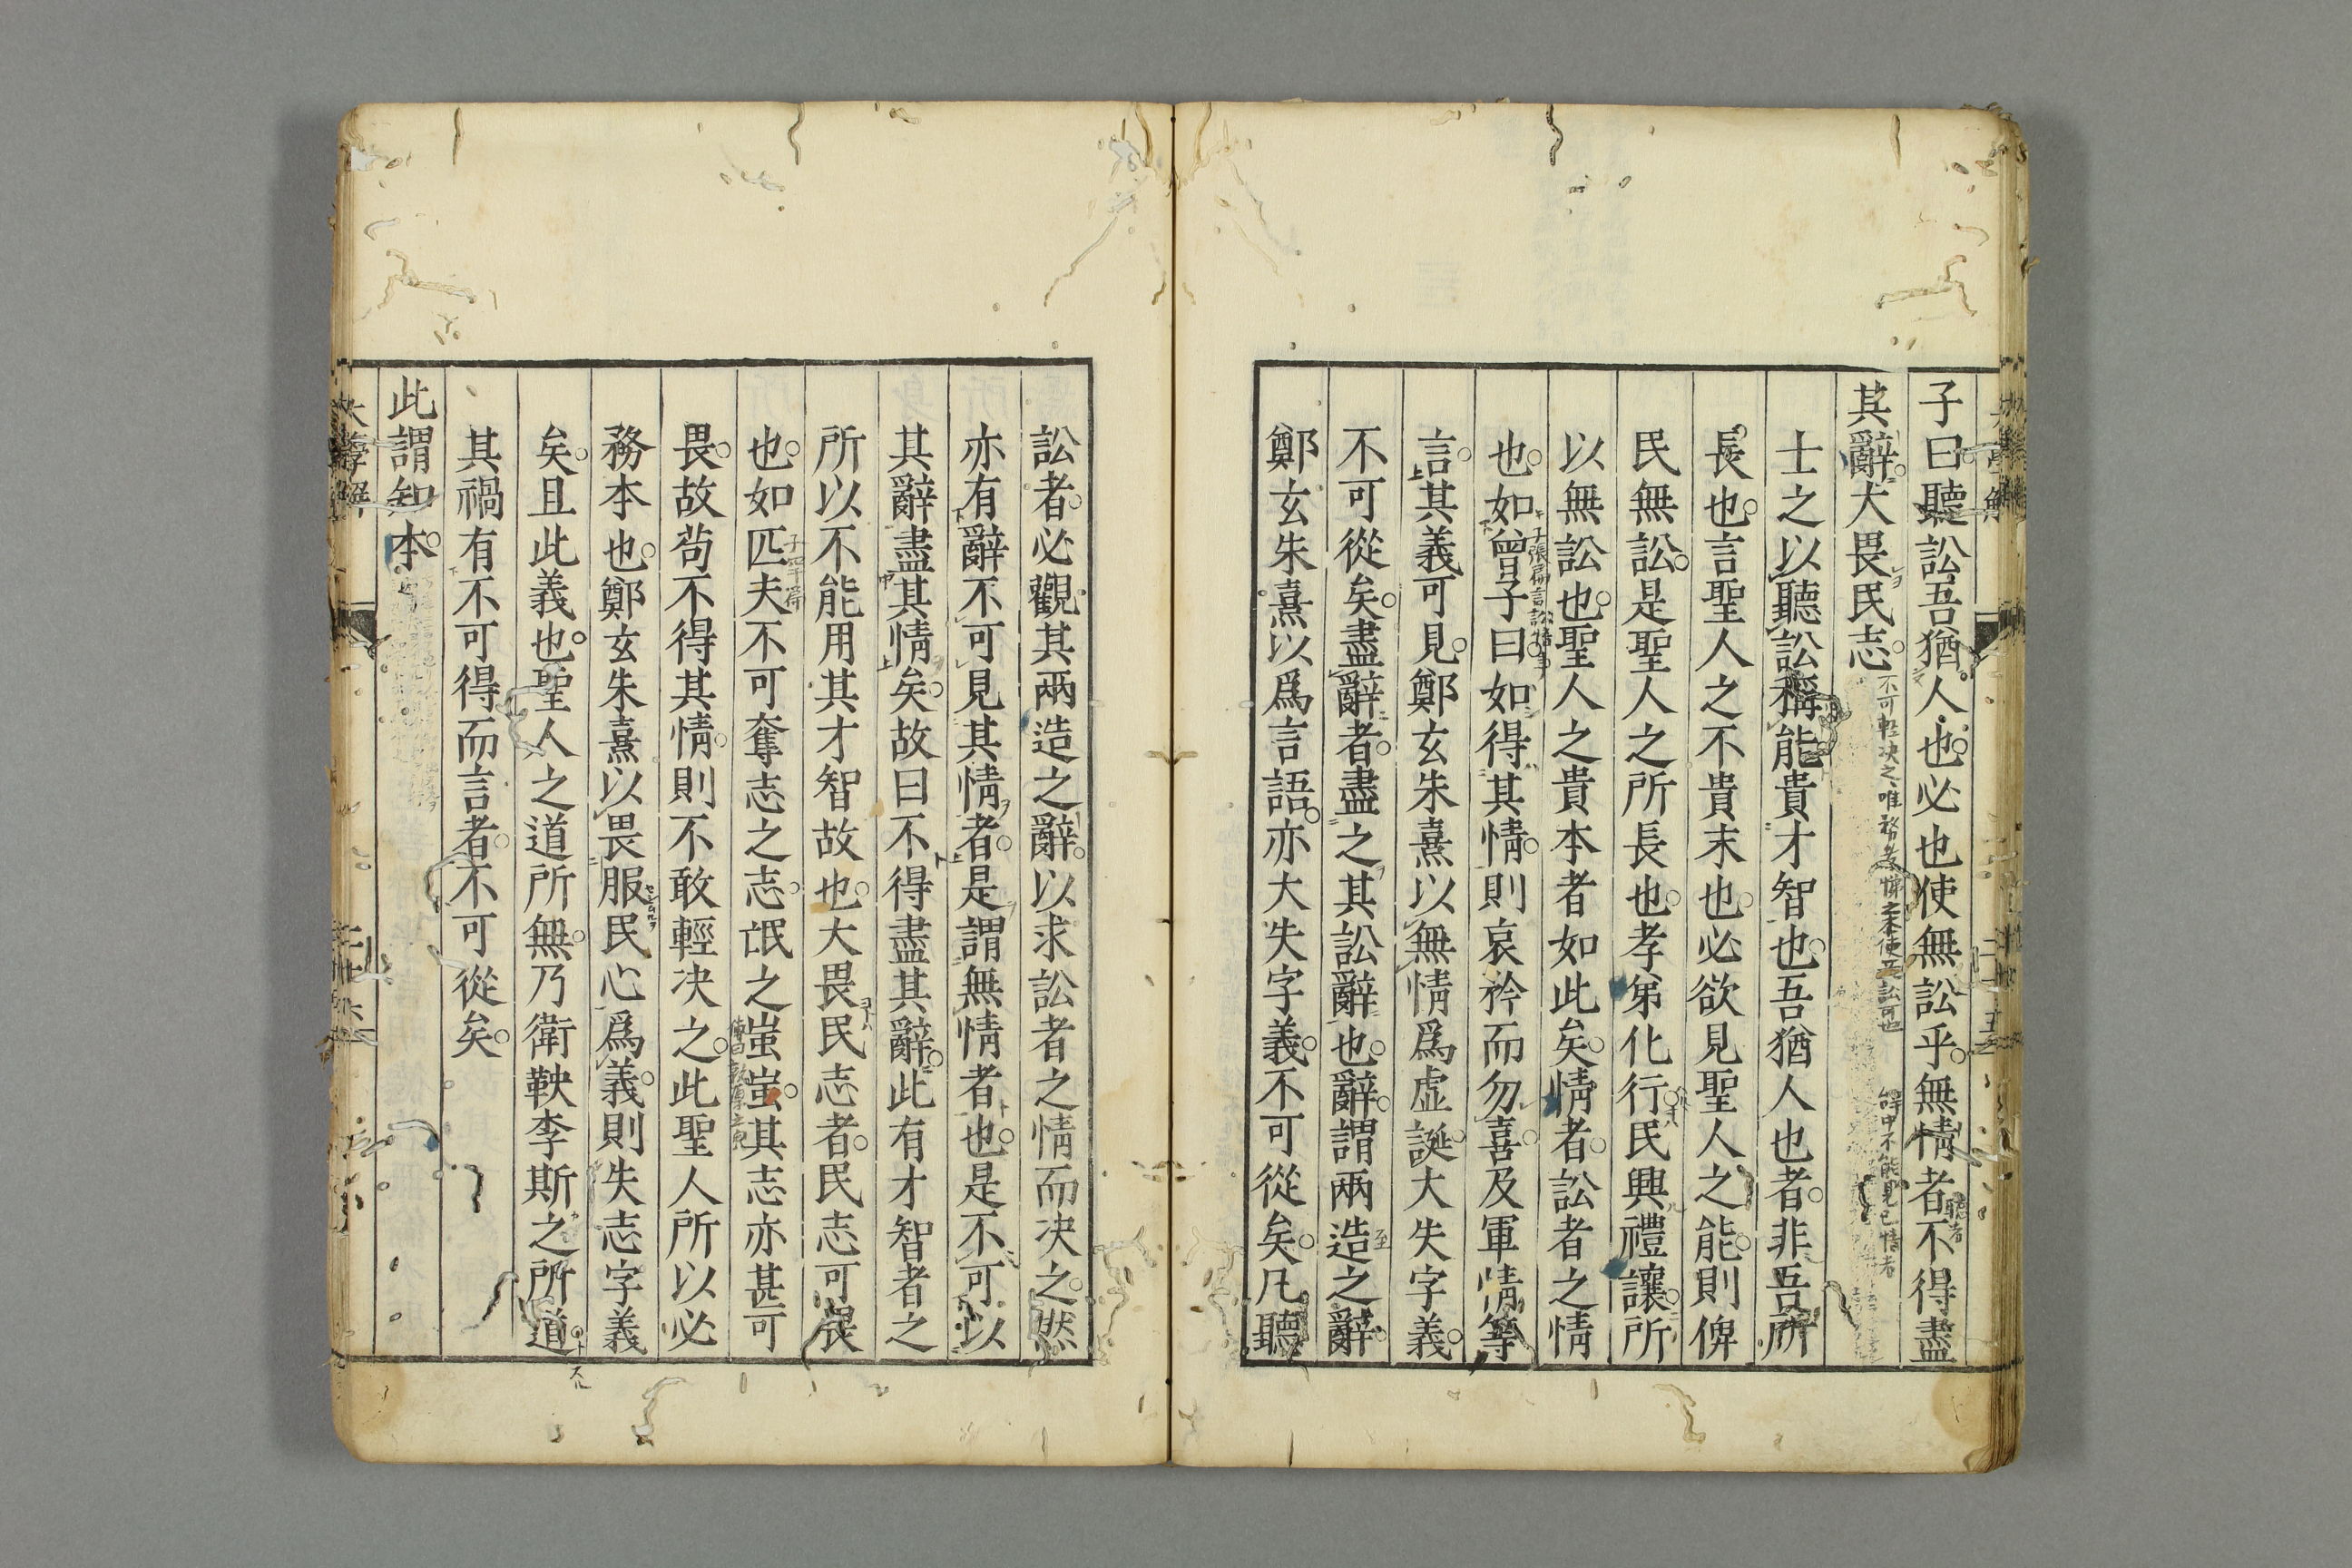 子曰聽訟吾猶人也必也使無訟乎無情者不得盡
其辭大畏民志
士之以聽訟稱能貴才智也吾猶人也者非吾所
長也言聖人之不貴末也必欲見聖人之能則俾
民無訟是聖人之所長也孝弟化行民興禮讓所
以無訟也聖人之貴本者如此矣情者訟者之情
也如曾子曰如得其情則哀矜而勿喜及軍情等
言其義可見鄭玄朱熹以無情爲虛誕大失字義
不可從矣盡辭者盡之其訟辭也辭謂兩造之辭
鄭玄朱熹以爲言語亦大失字義不可從矣凡聽
訟者必觀其兩造之辭以求訟者之情而决之然
亦有辭不可見其情者是謂無情者也是不可以
其辭盡其情矣故曰不得盡其辭此有才智者之
所以不能用其才智故也大畏民志者民志可畏
也如匹夫不可奪志之志氓之蚩蚩其志亦甚可
畏故苟不得其情則不敢輕决之此聖人所以必
務本也鄭玄朱熹以畏服民心爲義則失志字義
矣且此義也聖人之道所無乃衛鞅李斯之所道
其禍有不可得而言者不可從矣
此謂知本
大學解